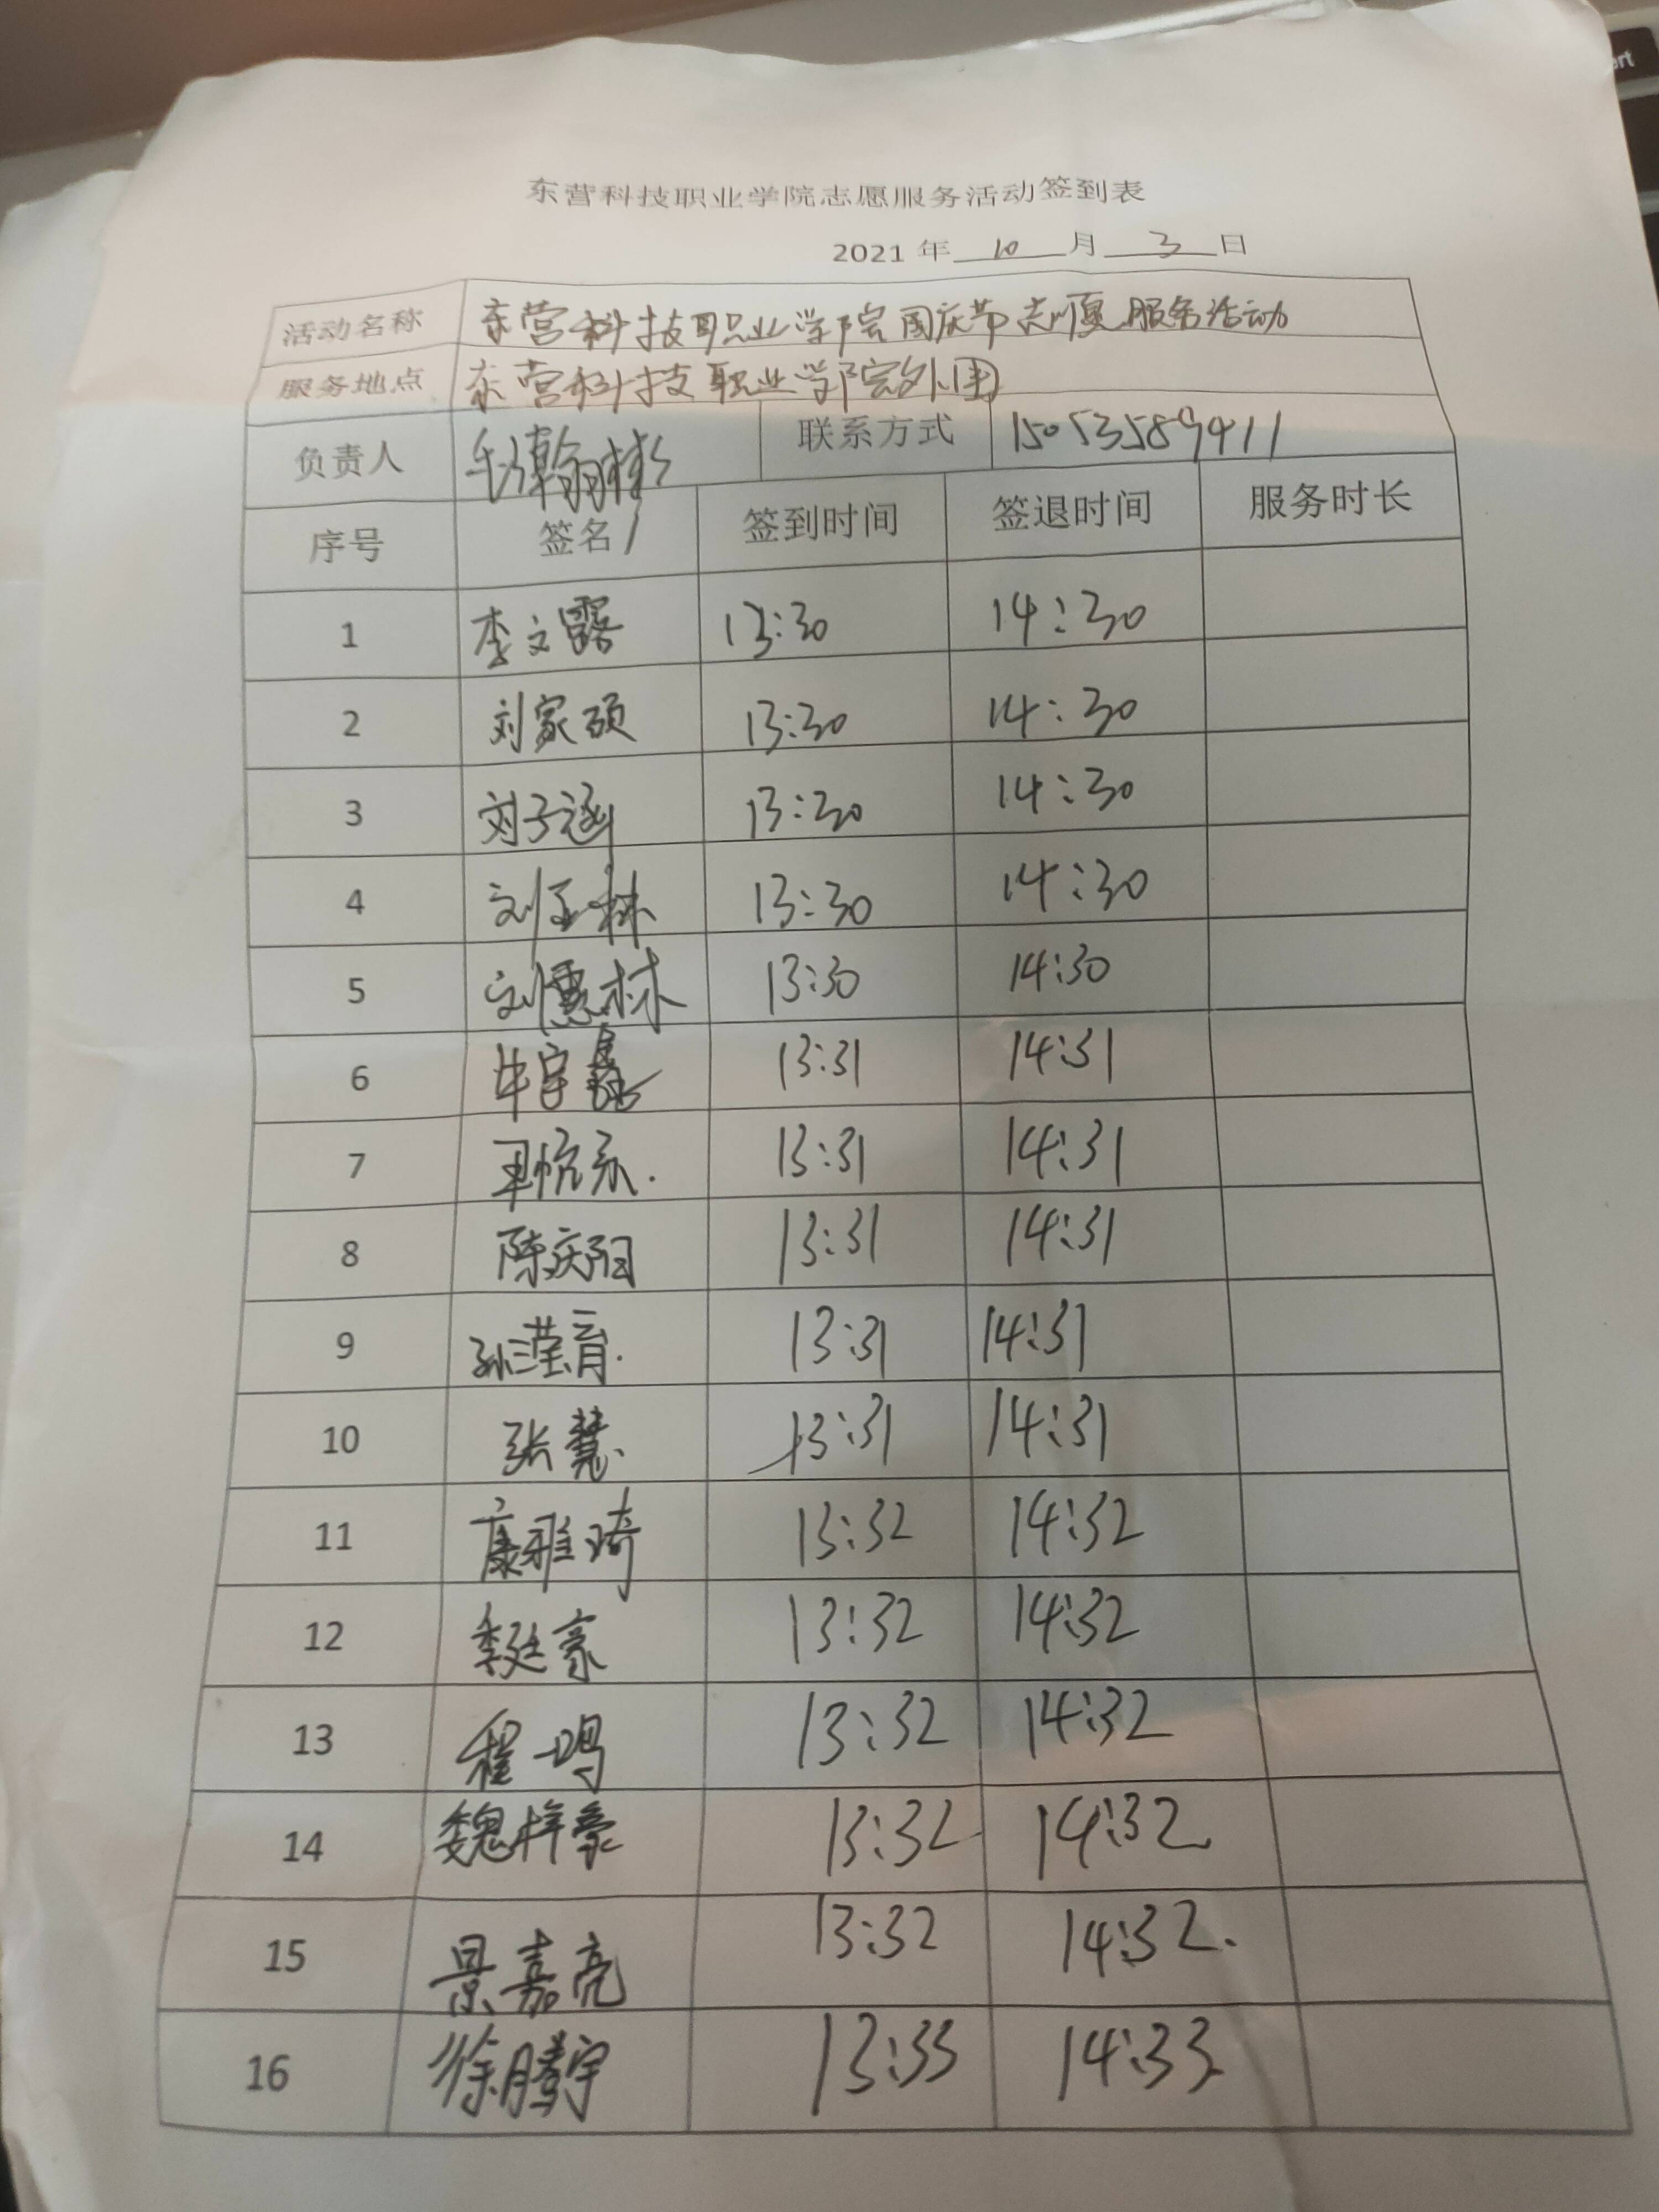 东营科技职业学院志愿服务活动签到表
2021 年 10 月 3 日
活动名称 东营科技职业学院国庆节志愿服务活动
服务地点 东营科技职业学院外围
负责人 毛瀚彬 联系方式 15053589411
序号 签名 签到时间 签退时间 服务时长
1 李文露 13:30 14:30
2 刘家硕 13:30 14:30
3 刘子涵 13:30 14:30
4 刘玉林 13:30 14:30
5 刘儒林 13:30 14:30
6 牛宇鑫 13:31 14:31
7 13:31 14:31
8 陈庆阳 13:31 14:31
9 孙滢育 13:31 14:31
10 张慧 13:31 14:31
11 康雅琦 13:32 14:32
12 季廷豪 13:32 14:32
13 程一鸣 13:32 14:32
14 魏梓豪 13:32 14:32
15 景嘉亮 13:32 14:32
16 徐腾宇 13:33 14:33